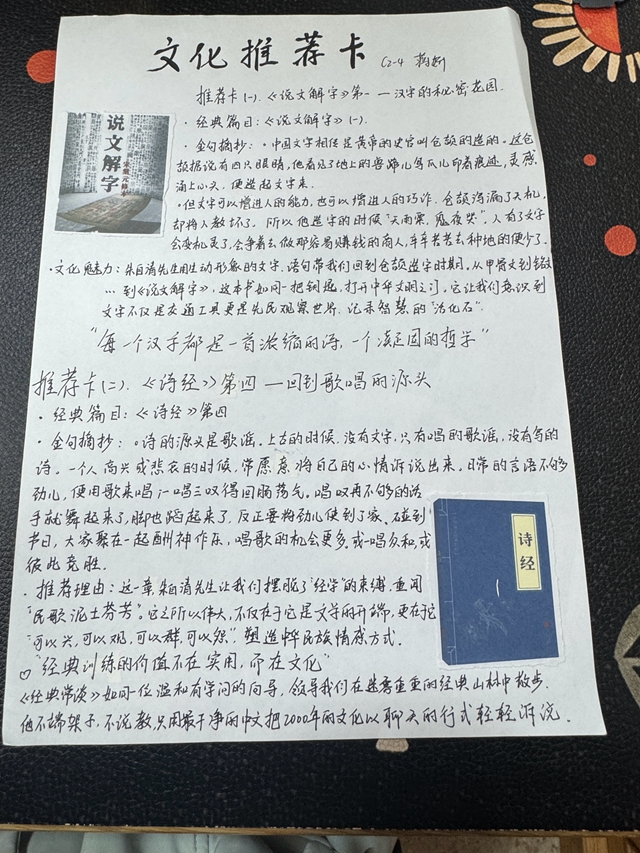 文化推荐卡 C2-4
推荐卡(一).《说文解字》第一 —汉字的秘密花园.
说文解字
·经典篇目:《说文解字》(一).
·金句摘抄:·中国文字相传是黄帝的史官叫仓颉的造的。这仓
颉据说有四只眼睛,他看见了地上的兽蹄儿鸟爪儿印着痕迹,灵感
涌上心头,便造起文字来.
·但文字可以增进人的能力,也可以增进人的巧诈。仓颉泄漏了天机,
却将人教坏了。所以他造字的时候"天雨粟,鬼夜哭"。人有了文字
会变机灵了,会争着去做那容易赚钱的商人,辛辛苦苦去种地的便少了.
·文化魅力:朱自清先生用生动形象的文字,语句带我们回到仓颉造字时期,从甲骨文到
…到《说文解字》,这本书如同一把钥匙,打开中华文明之门。它让我们意识到
文字不仅是交通工具更是先民观察世界、记录智慧的"活化石"。
"每一个汉字都是一首浓缩的诗,一个凝固的哲学"
推荐卡(二).《诗经》第四 —回到歌唱的源头
·经典篇目:《诗经》第四
·金句摘抄:。诗的源头是歌谣。上古的时候,没有文字,只有唱的歌谣,没有写的
诗。一个人高兴或悲哀的时候,常愿意将自己的心情诉说出来,日常的言语不够
劲儿,便用歌来唱;一唱三叹得回肠荡气。唱叹再不够的话
手就舞起来了,脚也蹈起来了,反正要将劲儿使到了家。碰到
节日,大家聚在一起酬神作乐,唱歌的机会更多。或一唱众和,或
彼此竞胜.
诗经
·推荐理由:这一章,朱自清先生让我们摆脱了"经学"的束缚,重闻
"民歌泥土芬芳"。它之所以伟大,不仅在于它是文学的开端,更在于它
"可以兴,可以观,可以群,可以怨".塑造中华民族情感方式.
♡"经典训练的价值不在实用,而在文化"
《经典常谈》如同一位温和有学问的向导,领导我们在迷雾重重的经典山林中散步.
他不端架子,不说教,只用最干净的中文把2000年的文化以聊天的形式轻轻诉说.